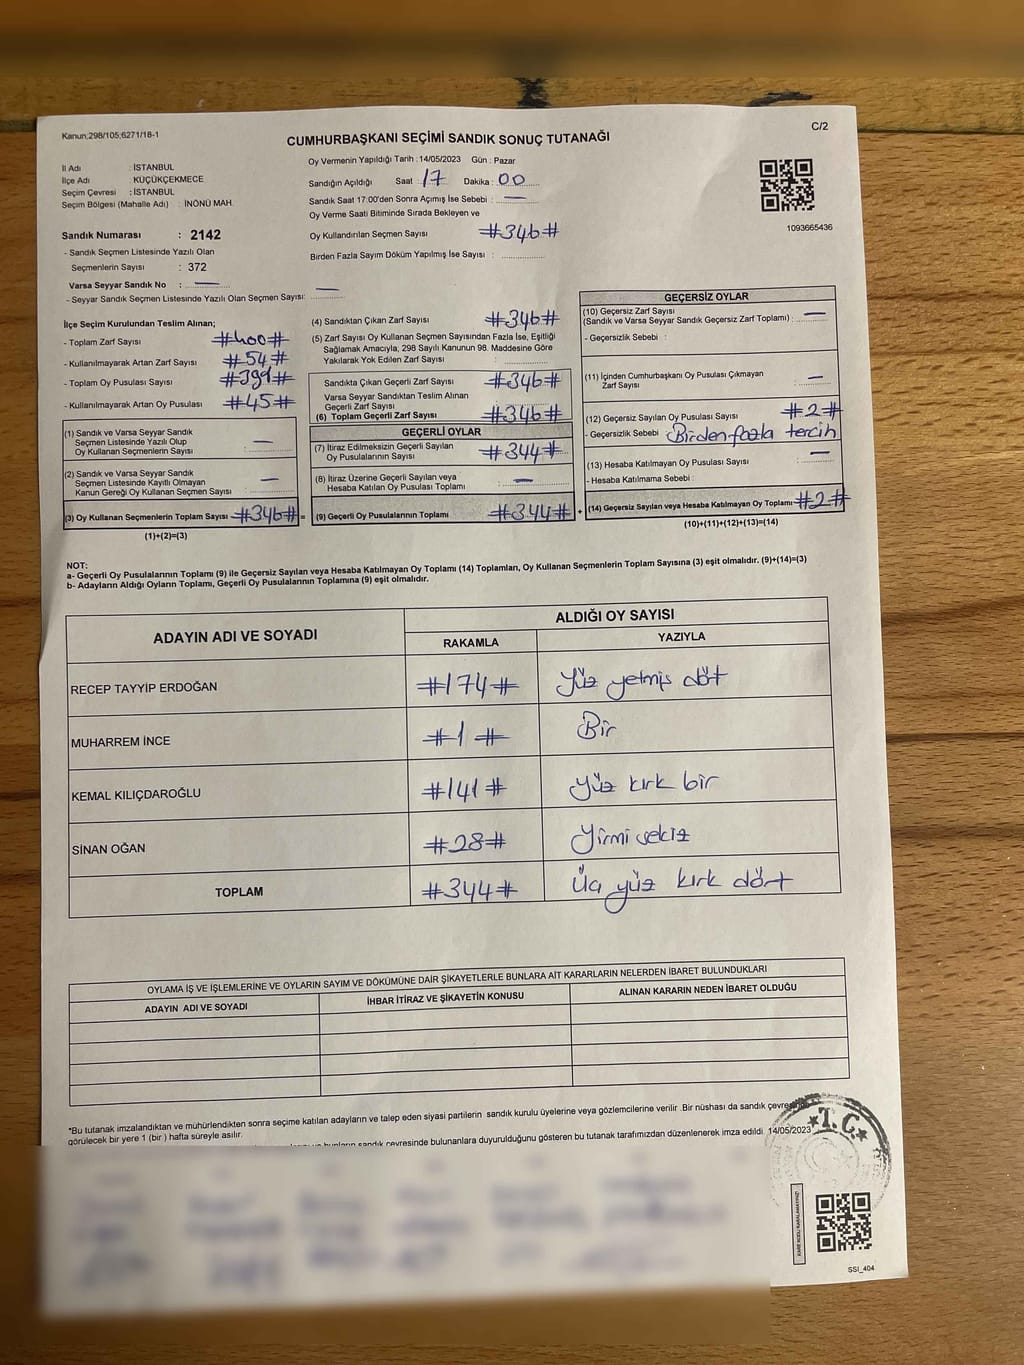 Kanun;298/105;6271/18-1
C/2
CUMHURBAŞKANI SEÇİMİ SANDIK SONUÇ TUTANAĞI
İl Adı : İSTANBUL
İlçe Adı : KÜÇÜKÇEKMECE
Seçim Çevresi : İSTANBUL
Seçim Bölgesi (Mahalle Adı) : İNÖNÜ MAH.
Sandık Numarası : 2142
- Sandık Seçmen Listesinde Yazılı Olan
Seçmenlerin Sayısı : 372
Varsa Seyyar Sandık No : —
- Seyyar Sandık Seçmen Listesinde Yazılı Olan Seçmen Sayısı: —
Oy Vermenin Yapıldığı Tarih : 14/05/2023 Gün : Pazar
Sandığın Açıldığı Saat : 17 Dakika : 00
Sandık Saat 17:00'den Sonra Açılmış İse Sebebi : —
Oy Verme Saati Bitiminde Sırada Bekleyen ve
Oy Kullandırılan Seçmen Sayısı #346#
Birden Fazla Sayım Döküm Yapılmış İse Sayısı :
1093665436
İlçe Seçim Kurulundan Teslim Alınan;
- Toplam Zarf Sayısı #400#
- Kullanılmayarak Artan Zarf Sayısı #54#
- Toplam Oy Pusulası Sayısı #391#
- Kullanılmayarak Artan Oy Pusulası #45#
(1) Sandık ve Varsa Seyyar Sandık
Seçmen Listesinde Yazılı Olup
Oy Kullanan Seçmenlerin Sayısı : —
(2) Sandık ve Varsa Seyyar Sandık
Seçmen Listesinde Kayıtlı Olmayan
Kanun Gereği Oy Kullanan Seçmen Sayısı : —
(3) Oy Kullanan Seçmenlerin Toplam Sayısı #346# =
(1)+(2)=(3)
(4) Sandıktan Çıkan Zarf Sayısı #346#
(5) Zarf Sayısı Oy Kullanan Seçmen Sayısından Fazla İse, Eşitliği
Sağlamak Amacıyla, 298 Sayılı Kanunun 98. Maddesine Göre
Yakılarak Yok Edilen Zarf Sayısı :
Sandıkta Çıkan Geçerli Zarf Sayısı #346#
Varsa Seyyar Sandıktan Teslim Alınan
Geçerli Zarf Sayısı
(6) Toplam Geçerli Zarf Sayısı #346#
GEÇERLİ OYLAR
(7) İtiraz Edilmeksizin Geçerli Sayılan
Oy Pusulalarının Sayısı #344#
(8) İtiraz Üzerine Geçerli Sayılan veya
Hesaba Katılan Oy Pusulası Toplamı : —
(9) Geçerli Oy Pusulalarının Toplamı #344# +
GEÇERSİZ OYLAR
(10) Geçersiz Zarf Sayısı
(Sandık ve Varsa Seyyar Sandık Geçersiz Zarf Toplamı) : —
- Geçersizlik Sebebi :
(11) İçinden Cumhurbaşkanı Oy Pusulası Çıkmayan
Zarf Sayısı : —
(12) Geçersiz Sayılan Oy Pusulası Sayısı #2#
- Geçersizlik Sebebi Birden fazla tercih
(13) Hesaba Katılmayan Oy Pusulası Sayısı : —
- Hesaba Katılmama Sebebi :
(14) Geçersiz Sayılan veya Hesaba Katılmayan Oy Toplamı #2#
(10)+(11)+(12)+(13)=(14)
NOT:
a- Geçerli Oy Pusulalarının Toplamı (9) ile Geçersiz Sayılan veya Hesaba Katılmayan Oy Toplamı (14) Toplamları, Oy Kullanan Seçmenlerin Toplam Sayısına (3) eşit olmalıdır. (9)+(14)=(3)
b- Adayların Aldığı Oyların Toplamı, Geçerli Oy Pusulalarının Toplamına (9) eşit olmalıdır.
ADAYIN ADI VE SOYADI
ALDIĞI OY SAYISI
RAKAMLA YAZIYLA
RECEP TAYYİP ERDOĞAN #174# Yüz yetmiş döt
MUHARREM İNCE #1# Bir
KEMAL KILIÇDAROĞLU #141# yüz kırk bir
SİNAN OĞAN #28# Yirmi sekiz
TOPLAM #344# Üç yüz kırk dört
OYLAMA İŞ VE İŞLEMLERİNE VE OYLARIN SAYIM VE DÖKÜMÜNE DAİR ŞİKAYETLERLE BUNLARA AİT KARARLARIN NELERDEN İBARET BULUNDUKLARI
ADAYIN ADI VE SOYADI İHBAR İTİRAZ VE ŞİKAYETİN KONUSU ALINAN KARARIN NEDEN İBARET OLDUĞU
*Bu tutanak imzalandıktan ve mühürlendikten sonra seçime katılan adayların ve talep eden siyasi partilerin sandık kurulu üyelerine veya gözlemcilerine verilir .Bir nüshası da sandık
görülecek bir yere 1 (bir ) hafta süreyle asılır.
sandık çevresinde bulunanlara duyurulduğunu gösteren bu tutanak tarafımızdan düzenlenerek imza edildi. 14/05/2023
★T.C.★
SSI_404